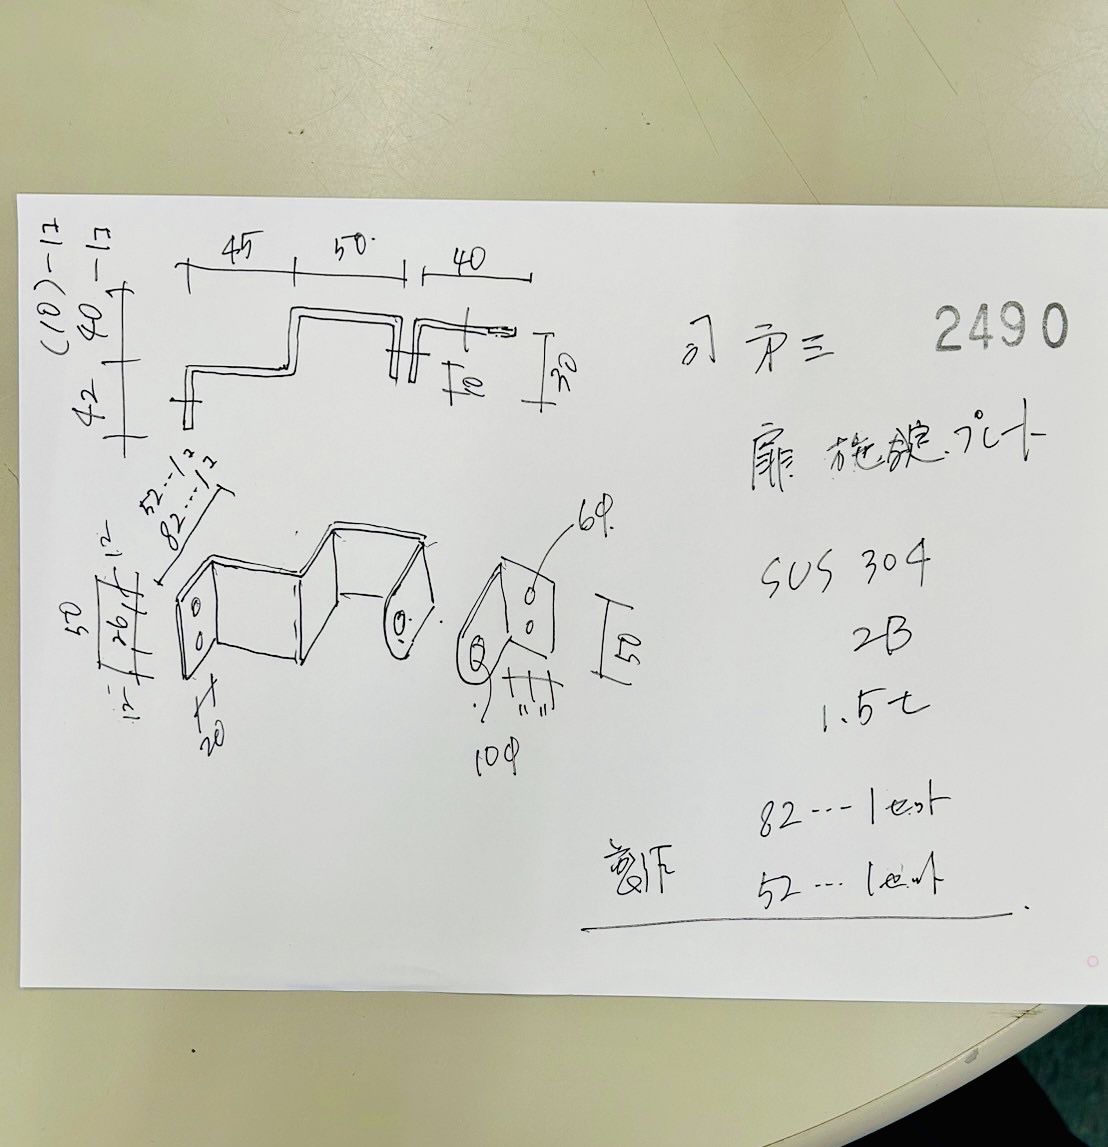 2490
扉 施錠.プレート
SUS 304
2B
1.5t
82---1セット
製作 52---1セット
45 50 40
(10)-1コ
40 -1コ
42
10
30
52---12
82---12
6φ
12
50 26
12
20
50
" "
10φ